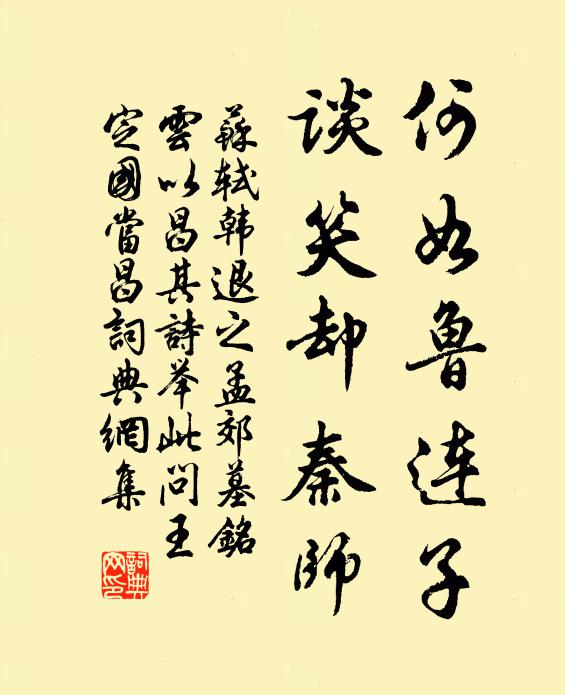 何如鲁連子
談笑却秦師
蘇軾韩退之孟郊墓銘
雲以昌其詩举此问王
定國當昌詞典網集
詞典
网印